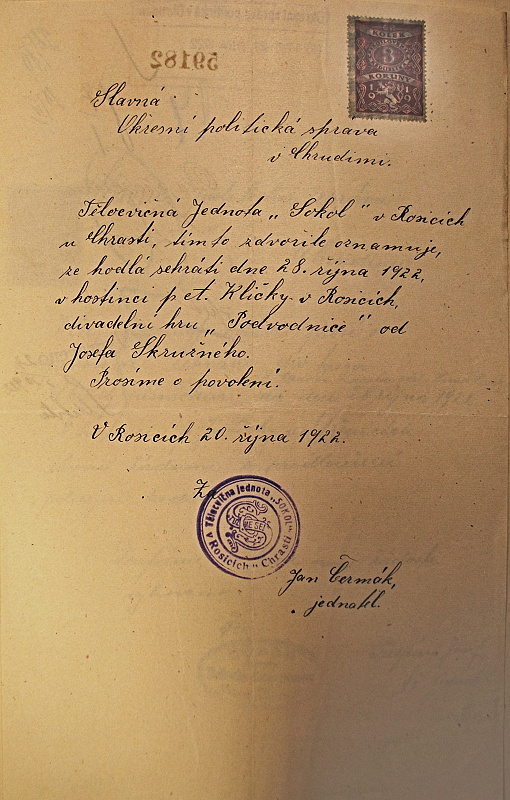 59182
KOLEK
3
KORUNY
Slavná
Okresní politická správa
v Chrudimi.
Tělocvičná Jednota „Sokol" v Rosicích
u Chrasti, tímto zdvořile oznamuje,
že hodlá sehráti dne 28. října 1922,
v hostinci p. et. Kličky v Rosicích,
divadelní hru „Podvodnice" od
Josefa Skružného.
Prosíme o povolení.
V Rosicích 20. října 1922.
Za
Tělocvična jednota „SOKOL"
v Rosicích u Chrasti
Jan Čermák,
jednatel.